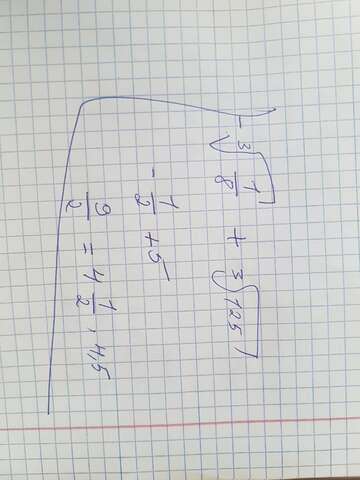 - ³√1/8 + ³√125
- 1/2 + 5
9/2 = 4 1/2, 4,5